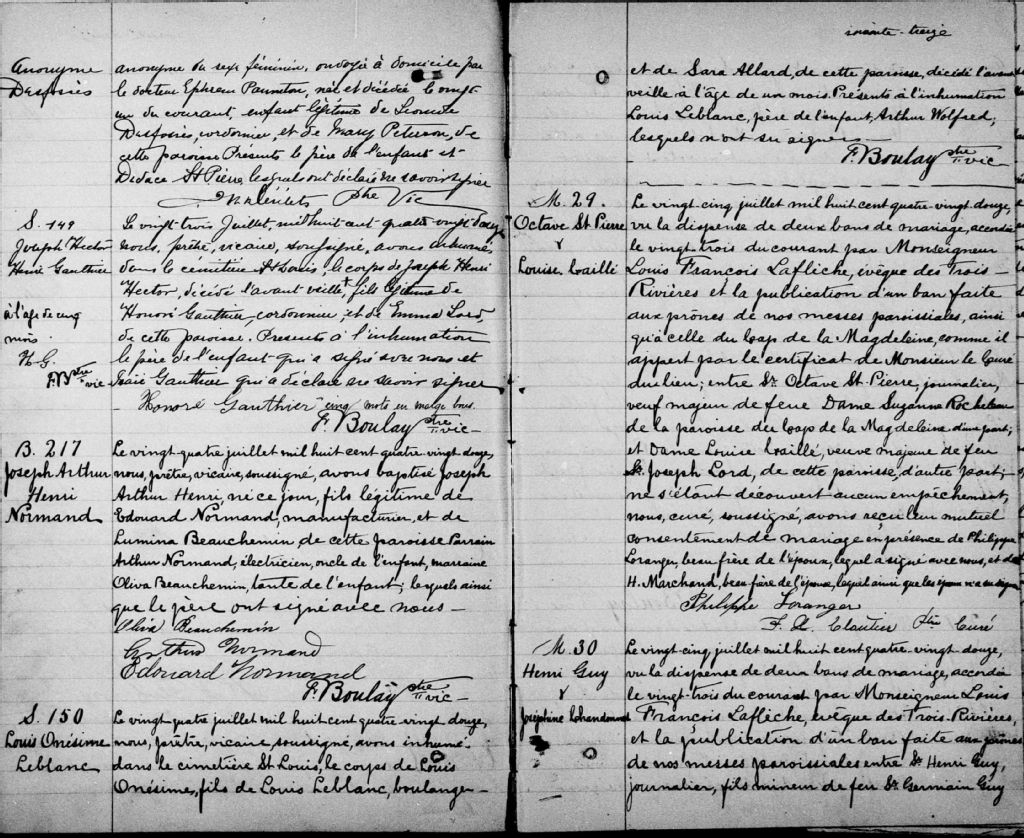 Anonyme
Desfosiés
anonyme du sexe féminin, ondoyé à domicile par
le docteur Ephrem Panneton, née et décédée le vingt
un du courant, enfant légitime de
Desfosiés, cordonnier, et de Mary Peterson, de
cette paroisse Présents le père de l'enfant et
Didace St Pierre, lesquels ont déclaré ne savoir signer
Ptre Vic
S. 149
Joseph Hector
Henri Gauthier
à l'age de cinq
mois.
H. G.
F. B. ptre vic
Le vingt trois Juillet, mil huit cent quatre vingt douze
nous, prêtre, vicaire, soussigné, avons inhumé,
dans le cimetière St Louis, le corps de Joseph Henri
Hector, décédé l'avant veille, fils légitime de
Honoré Gauthier, cordonnier, et de Emma Lord,
de cette paroisse. Présents à l'inhumation
le père de l'enfant qui a signé avec nous et
Gauthier qui a déclaré ne savoir signer
Honoré Gauthier cinq mots en marge bons.
F. Boulay ptre vic
B. 217
Joseph Arthur
Henri
Normand
Le vingt-quatre juillet mil huit cent quatre vingt douze,
nous, prêtre, vicaire, soussigné, avons baptisé Joseph
Arthur Henri, né ce jour, fils légitime de
Edouard Normand, manufacturier, et de
Lumina Beauchemin, de cette paroisse Parrain
Arthur Normand, électricien, oncle de l'enfant, marraine
Oliva Beauchemin, tante de l'enfant; lesquels ainsi
que le père ont signé avec nous
Oliva Beauchemin
Arthur Normand
Edouard Normand
F. Boulay ptre vic
S. 150
Louis Onésime
Leblanc
Le vingt-quatre juillet mil huit cent quatre vingt douze,
nous, prêtre, vicaire soussigné, avons inhumé
dans le cimetière St Louis, le corps de Louis
Onésime, fils de Louis Leblanc, boulanger
soixante-treize
et de Sara Allard, de cette paroisse, décédé l'avant
veille à l'âge de un mois. Présents à l'inhumation
Louis Leblanc, père de l'enfant, Arthur Wolfred;
lesquels n'ont su signer
F. Boulay ptre vic
M. 29.
Octave St Pierre
&
Louise Caillé
Le vingt-cinq juillet mil huit cent quatre-vingt-douze,
vu la dispense de deux bans de mariage, accordée
le vingt-trois du courant par Monseigneur
Louis François Laflèche, évêque des Trois-
Rivières et la publication d'un ban faite
aux prônes de nos messes paroissiales, ainsi
qu'à celle du Cap de la Magdeleine, comme il
appert par le certificat de Monsieur le Curé
du lieu; entre Sr. Octave St-Pierre, journalier,
veuf majeur de feue Dame Suzanne Rocheleau
de la paroisse du Cap de la Magdeleine d'une part;
et Dame Louise Caillé, veuve majeure de feu
Sr. Joseph Lord, de cette paroisse, d'autre part;
ne s'étant découvert aucun empêchement,
nous, curé, soussigné, avons reçu leur mutuel
consentement de mariage en présence de Philippe
Loranger, beau frère de l'époux, lequel a signé avec nous, et de
H. Marchand, beau frère de l'épouse, lequel ainsi que les époux n'a su signer
Philippe Loranger
F. X. Cloutier Ptre Curé
M. 30
Henri Guy
&
Joséphine Chandonnet
Le vingt-cinq juillet mil huit cent quatre-vingt-douze,
vu la dispense de deux bans de mariage, accordée
le vingt-trois du courant par Monseigneur Louis
François Laflèche, évêque des Trois-Rivières,
et la publication d'un ban faite aux prônes
de nos messes paroissiales entre Sr Henri Guy,
journalier, fils mineur de feu Sr. Germain Guy